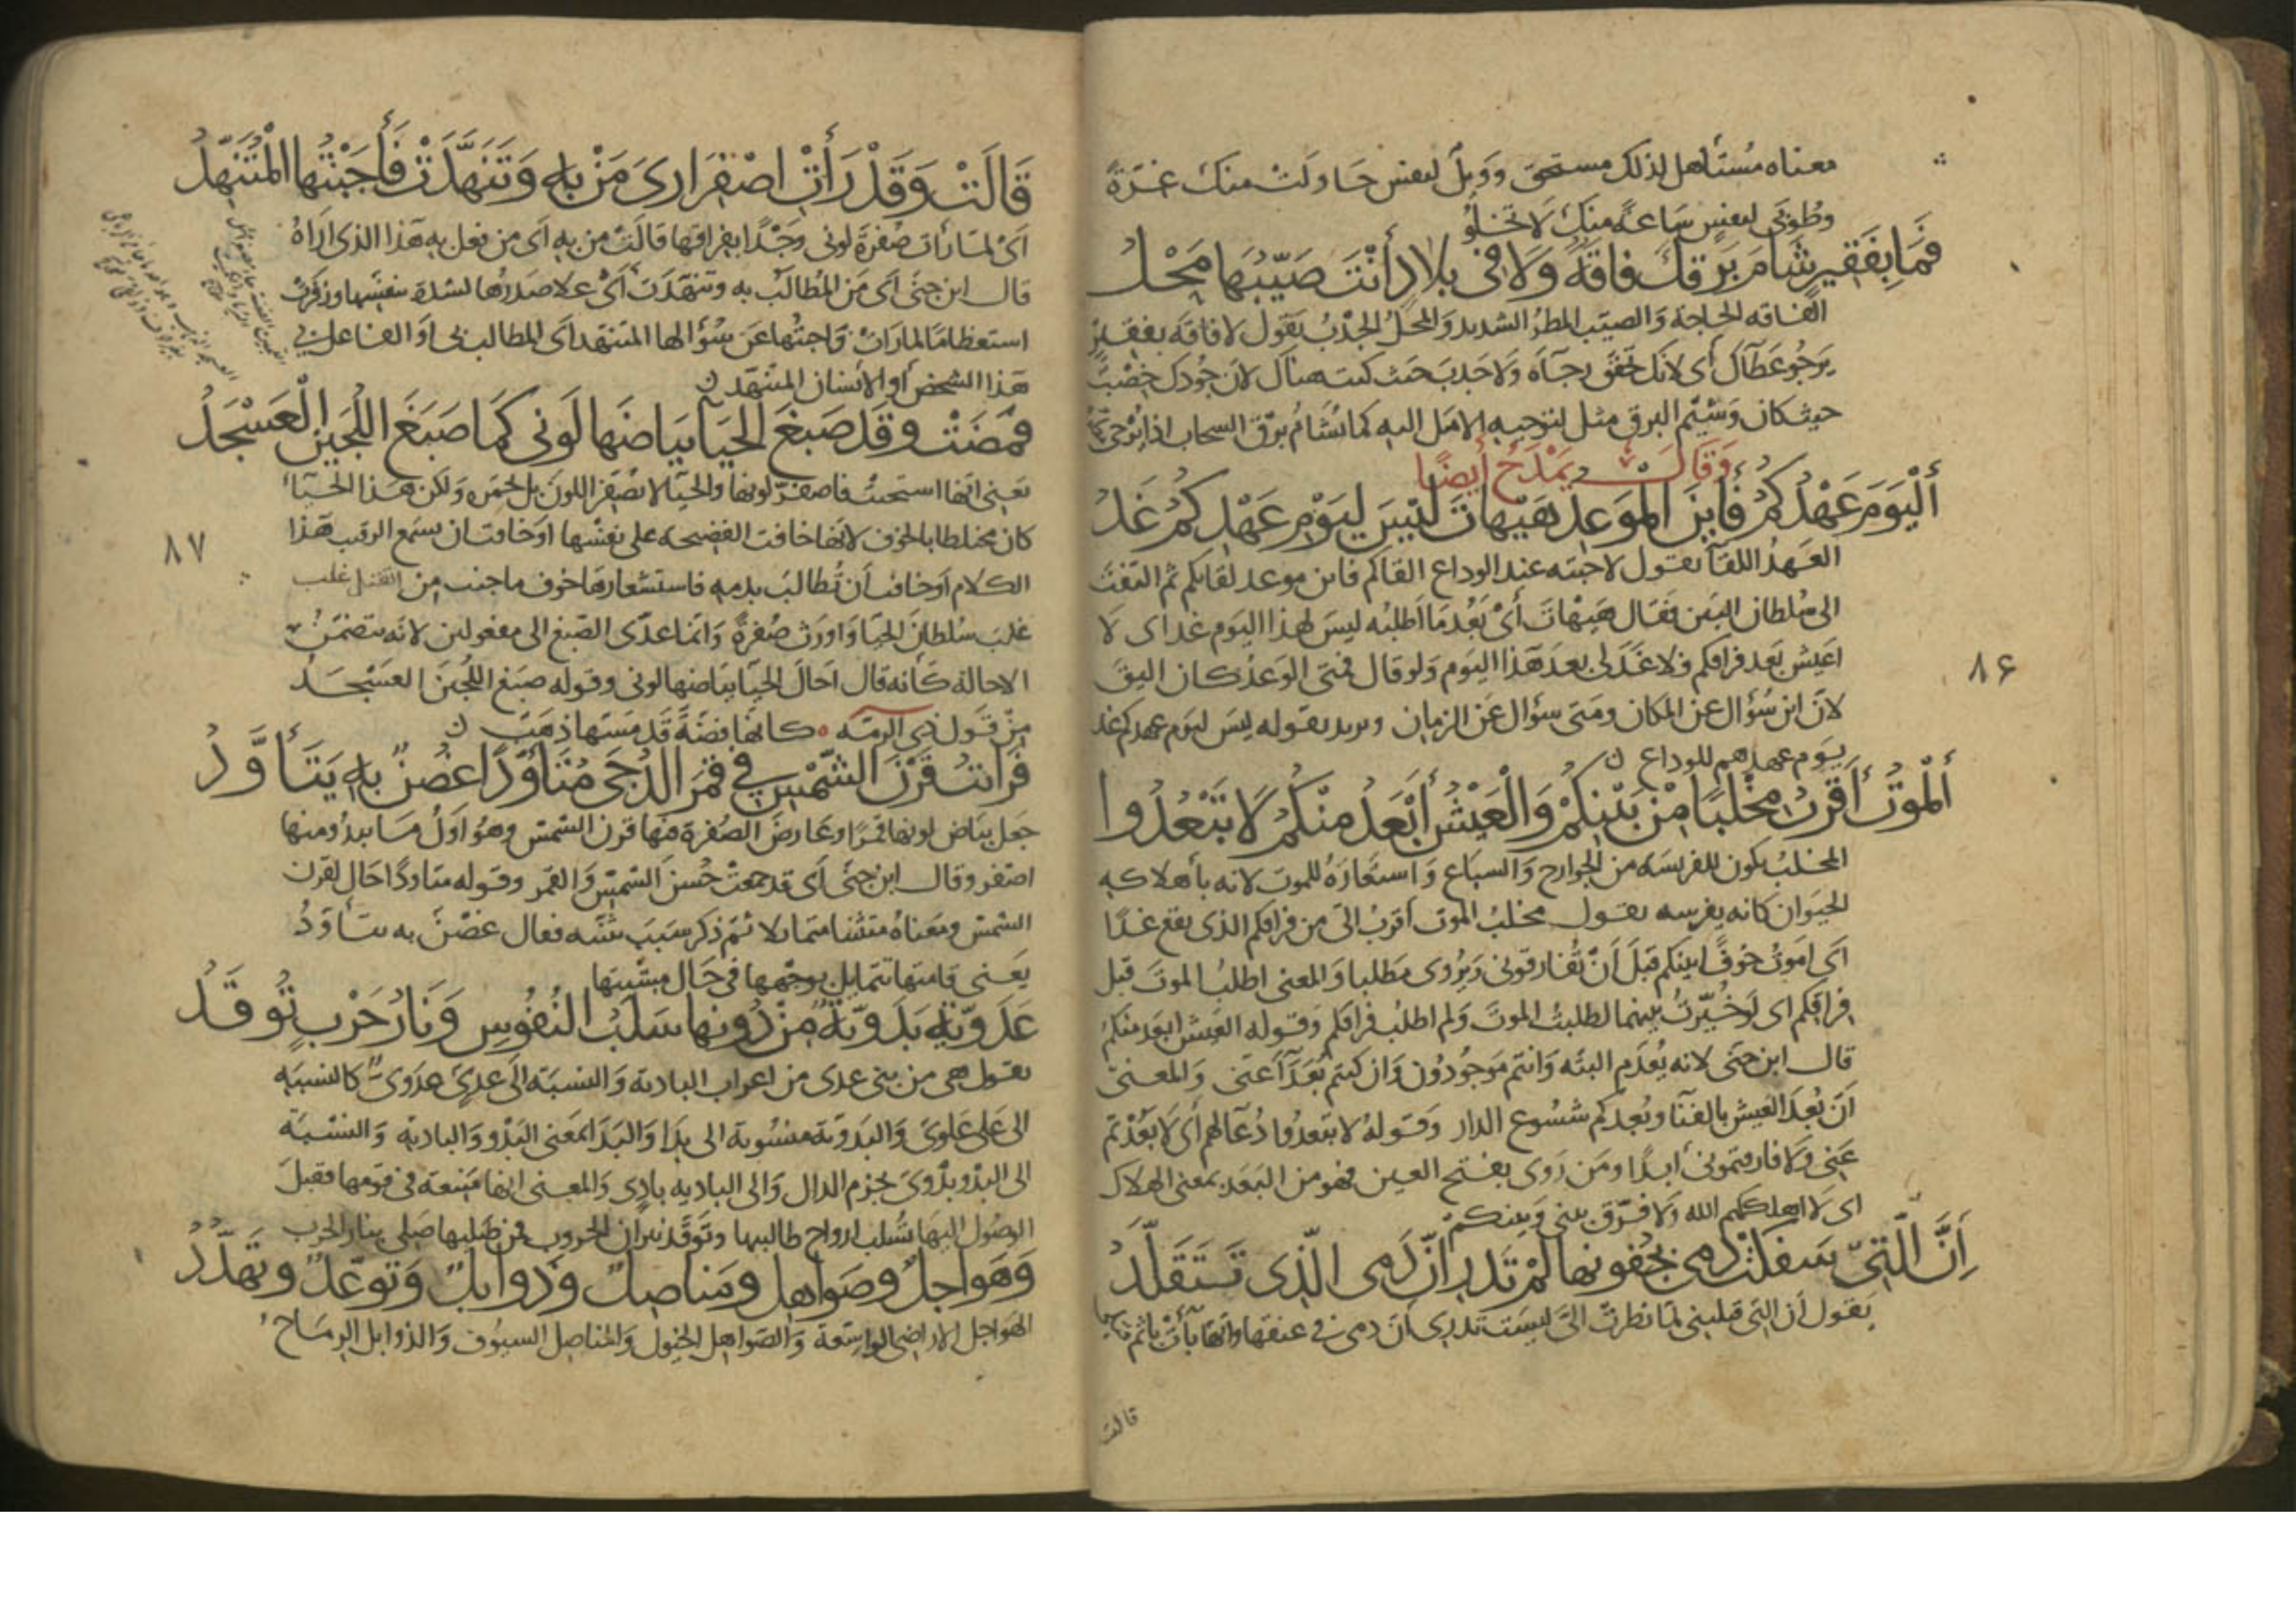 معناه مُستأهل لذلك مستحق وويلٌ لنفس حاولت منك غرّةً
وطُوبى لنفسٍ ساعةً منك لا تخلُو
فَمَا بِفَقِيرٍ شَامَ بَرْقَكَ فَاقَةٌ وَلَا فى بلادٍ أَنْتَ صَيِّبُهَا مَحْلُ
الفاقه الحاجة والصيّب المطرُ الشديد والمحلُ الجَدْبُ يقول لا فاقة بفقيرٍ
يرجُو عطآك أى لانك تحقق رجآه ولا جدب حيث كنت هناك لان جُودك خِصْبٌ
حيث كان وشيْم البرق مثل لتوجيه الامل اليه كما يُشامُ برق السحاب اذا يُرْجى
وَقَالَ يَمْدَحُ أيضًا
أَلْيَوْمَ عَهْدُكُمُ فَأَيْنَ المَوعِدُ هَيْهَاتَ لَيْسَ لِيَوْمِ عَهْدِكُمُ غَدُ
العهدُ اللقآ يقول لاحبته عند الوداع القاكم فاين موعد لقائكم ثم التفت
الى سُلطان البَين فقال هيهات أىْ بَعُدَ ما اَطلبُه ليسَ لهذا اليَوم غدا اى لا
اعيش بعد فراقكم فلا غدَ لى بعدَ هَذا اليَوم ولو قال فمتى الوعدُ كان اليقَ
لانّ اين سُؤال عن المكان ومتى سؤال عَن الزمان ويريد بقوله ليسَ ليوم عهدكم غد
يوم عهدهم للوداع
أَلْمَوْتُ أَقْرَبُ مِخْلَبًا مِنْ بَيْنِكُمْ وَالْعَيْشُ أَبْعَدُ مِنْكُمُ لَا تَبْعُدُوا
المخلبُ يكون للفريسَه من الجوارح والسباع واستعارهُ للموت لانه بأهلاكه
الحيَوان كانه يفرسه يقول مخلبُ الموت اقربُ الىّ من فراقكم الذى يقع غدًا
اَى اموتُ خوفًا لبينكم قبلَ اَنْ تُفارقونى ويُروى مطلبا والمعنى اطلبُ الموتَ قبل
فراقكم اى لَو خُيّرتُ بينهما لطلبتُ الموتَ ولم اطلبْ فراقكم وقوله العيش ابعد منكم
قال ابن جنّى لانه يُعدَم البتّه وَانتم مَوجُودُون وَان كنتم بُعَدَآ عنّى وَالمعنى
اَنّ بُعدَ العيش بالفنآ وبُعدكم شسُوع الدار وقولهُ لا تبعدُوا دُعآ لهم أى لا بَعُدْتم
عَنّى وَلا فارقتمونى أبدًا ومَن رَوى بفتح العين فهو من البَعَد بمعنى الهلاك
اى لا اهلككم الله ولا فرّق بينى وبينكم
إِنَّ الَّتِى سَفَكَتْ دَمِى بِجُفُونِها لَمْ تَدْرِ أنَّ دَمِى الَّذِى تَتَقَلَّدُ
يَقول اَن التى قتلتنى لمّا نظرتْ الىّ ليست تدرى أن دمى فى عنقها وانّها بآت باثم
قالت
٨۶
قَالَتْ وَقَدْ رَأَتِ اصْفِرَارِى مَنْ بِهِ وَتَنَهَّدَتْ فَأَجَبْتُها الْمُتَنَهِّدُ
اَىْ لمّا رأت صُفرةَ لونى وَجْدًا بفراقها قالتْ من به أى من فعل به هذا الذى اراهُ
قال ابن جنّى أى مَن المُطالَب به وتنهّدَت أىْ علا صدرُها لشدة نفسها وزفرتْ
استعظامًا لما رأتْ وَاجبتُها عَن سُؤالها المتنهد أى المطالب بى او الفاعل بى
هذا الشخص أو الانسان المتنهّد
فَمَضَتْ وقَد صَبَغَ الحَيآ بَياضَها لَونى كَما صَبَغَ اللُّجَينَ الْعَسْجَدُ
يَعنى انّها استحيتْ فاصفرّ لونها والحيآ لا يُصَفّر اللون بل يحمّره وَلكن هَذا الحيآ
كان مختلطا بالخوف لانها خافت الفضيحه على نفسها أو خافت ان يسمع الرقيب هذا
الكلام أو خافت أن تُطالبَ بدمه فاستشعارها خوف ما جنت من القتل غلب
غلبَ سُلطانَ الحيَا وَاورث صُفرةً وَانما عدّى الصّبغ الى مفعولين لانّه يتضمّن
الاحالة كأنه قال اَحالَ الحيآ بيَاضها لونى وقوله صبَغ اللُّجَينَ العَسْجَدُ
مِنْ قَول ذي الرمّه ۰ كانها فضةٌ قَد مَسّها ذهَبُ
فَرَأيتُ قَرْنَ الشّمْسِ فى قَمَرِ الدُّجَى مُتَأَوِّدًا غُصْنٌ بِهِ يَتَأَوَّدُ
جعَل بيَاض لونها قمرًا وعَارض الصُفرة فيها قرن الشمس وهُوَ اَولُ مَا يبدُو منها
اصفر وقال ابن جنّى أى قد جمعتْ حُسنَ الشّمس وَالقمر وقوله متاودًا حَال لقرن
الشمس ومَعناهُ متثنيا متمايلا ثمّ ذكر سَبَبَ تثنّيه فقال غُصْنٌ به يتأوّدُ
يَعنى قامتها تتمايل بوجهها فى حَال مشيتها
عَدَوِيَّةٌ بَدَوِيَّةٌ مِنْ دُونِها سَلْبُ النُّفُوسِ وَنَارُ حَرْبٍ تُوقَدُ
يقول هى من بنى عدى من اعراب البادية والنسبَة الى عدىّ عدَوىّ كالنسبه
الى على علوىّ وَالبدويّة منسُوبة الى بدَا وَالبَدَا بمَعنى البَدْو وَالبادية وَالنسبَة
الى البدْو بدْوىّ بجزم الدال وَالى الباديه بادىّ وَالمعنى انها مَنيعة فى قومها فقبلَ
الوصُول اليها تُسْلب ارواح طالبيها وتوقَد نيران الحروب فمن طلبها صلى بنار الحرب
وَهَواجِلٌ وصَواهِلٌ ومَناصِلٌ وذَوابِلٌ وَتَوَعُّدٌ وتَهَدُّدُ
الهَواجل الاراضى الواسعة والصّواهل الخيول والمناصل السيُوف وَالذوابل الرمَاح
٨٧